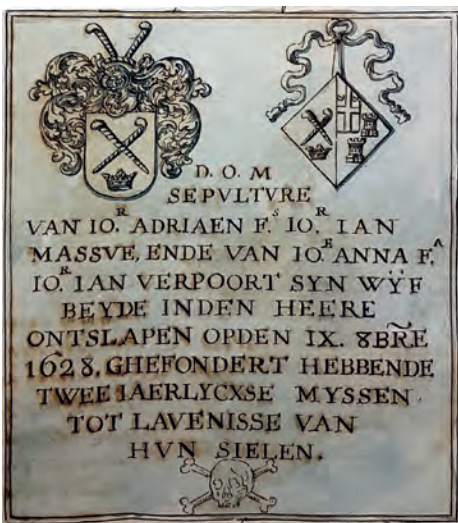 D. O. M
SEPVLTVRE
VAN IO.R ADRIAEN F.S IO.R IAN
MASSVE, ENDE VAN IO.E ANNA F.A
IO.R IAN VERPOORT SYN WŸF
BEYDE INDEN HEERE
ONTSLAPEN OPDEN IX. 8BR̃E
1628. GHEFONDERT HEBBENDE
TWEE IAERLYCXSE MYSSEN
TOT LAVENISSE VAN
HVN SIELEN.